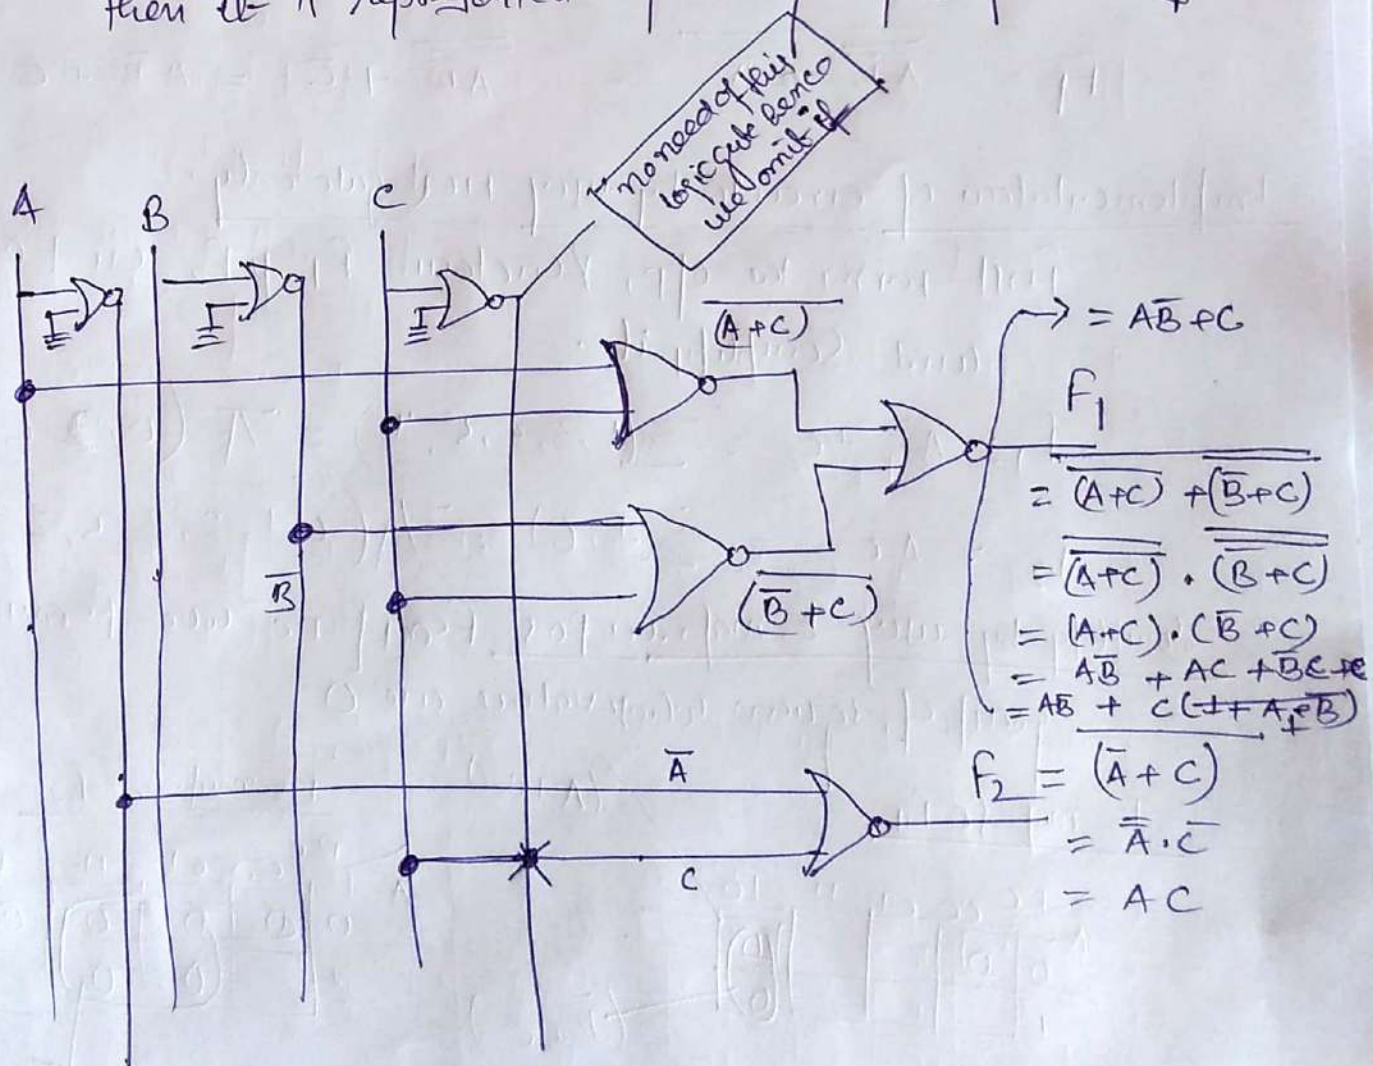 then it is
no need of this
logic gate hence
we omit it
A
B
C
(A+C)‾
= AB̅ + C
F₁
= \overline{\overline{(A+C)} + \overline{(B̅+C)}}
= \overline{\overline{(A+C)}} · \overline{\overline{(B̅+C)}}
B̅
\overline{(B̅+C)}
= (A+C)·(B̅+C)
= AB̅ + AC + B̅C + C
= AB̅ + C(1+A+B̅)
1
A̅
F₂ = \overline{(A̅+C)}
= A̿·C̅
C
= AC